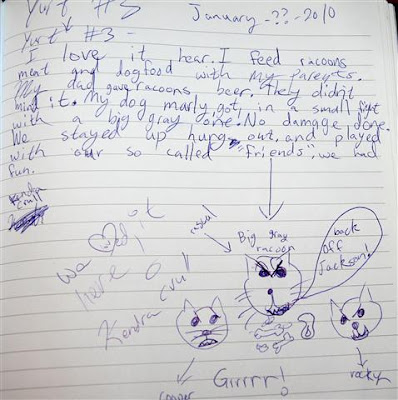 Yurt #3
January -??- 2010
Yurt #3 -
I love it hear. I feed racoons
meat and dogfood with my parents.
My dad gave racoons beer. they didn't
mind it. My dog marly got in a small fight
with a big gray one. No damage done.
We stayed up hung out, and played
with our so called "friends". we had
fun.
Kendra
Crull
casual
Big gray
racoon
back
off
Jackson!
we loved it
here
Kendra Crull
Grrrr!
cooper
rocky